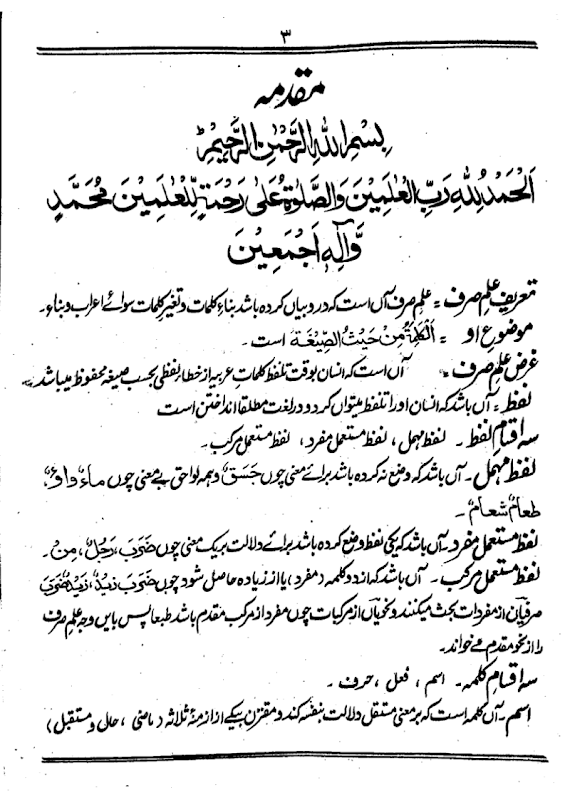 ۳
مقدمہ
بِسْمِ اللهِ الرَّحْمٰنِ الرَّحِیْمِ
اَلْحَمْدُ لِلّٰهِ رَبِّ الْعٰلَمِیْنَ وَالصَّلٰوةُ عَلٰی رَحْمَةٍ لِّلْعٰلَمِیْنَ مُحَمَّدٍ
وَّاٰلِهٖ اَجْمَعِیْنَ
تعریفِ علمِ صرف = علمِ صرف آں است کہ درو بیاں کردہ باشد بناءِ کلمات و تغیرِ کلمات سوائے اعراب و بناء۔
موضوعِ او = اَلْکَلِمَةُ مِنْ حَیْثُ الصِّیْغَةِ است ۔
غرضِ علمِ صرف = آں است کہ انسان بوقتِ تلفظِ کلماتِ عربیہ از خطاءِ لفظی بحسبِ صیغہ محفوظ میباشد۔
لفظ = آں باشد کہ انسان اورا تلفظ میتواں کرد و در لغت مطلقا انداختن است
سہ اقسامِ لفظ ۔ لفظ مہمل ، لفظ مستعمل مفرد ، لفظ مستعمل مرکب ۔
لفظ مہمل ۔ آں باشد کہ وضع نہ کردہ باشد برائے معنی چوں جَسَقٌ و ہمہ لواحقِ بے معنی چوں ماءٌ داءٌ،
طعامٌ شعامٌ ۔
لفظ مستعمل مفرد ۔ آں باشد کہ یکی لفظ وضع کردہ باشد برائے دلالت بریک معنی چوں ضَرَبَ ، رَجُلٌ ، مِنْ ۔
لفظ مستعمل مرکب ۔ آں باشد کہ از دو کلمہ (مفرد) یا از زیادہ حاصل شود چوں ضَرَبَ زَیْدٌ ، زَیْدٌ ضَرَبَ
صرفیاں از مفردات بحث میکنند و نحویاں از مرکبات چوں مفرد از مرکب مقدم باشد طبعا پس بایں وجہ علم صرف
را از نحو مقدم مے خواند۔
سہ اقسامِ کلمہ ۔ اسم ، فعل ، حرف ۔
اسم ۔ آں کلمہ است کہ بر معنی مستقل دلالت بنفسہ کند و مقترن بیکے از ازمنۂ ثلاثہ (ماضی ، حال و مستقبل)